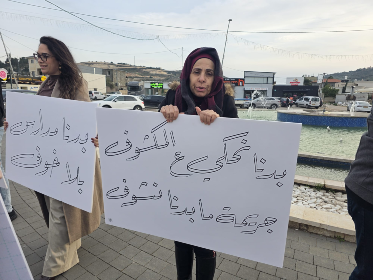 بدنا مدارس
بلا خوف
بدنا نحكي ع المكشوف
جريمة ما بدنا نشوف